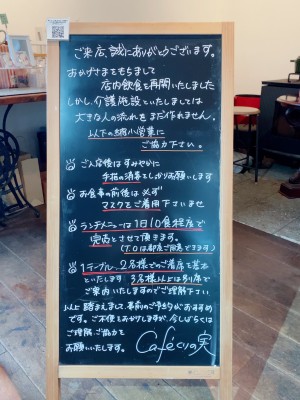 ご来店、誠にありがとうございます。
おかげさまをもちまして
店内飲食を再開いたしました
しかし、介護施設といたしましては
大きな人の流れをまだ作れません。
以下の縮小営業に
ご協力下さい。
ご入店後はすみやかに
手指の消毒をしかりお願いします
お食事の前後は必ず
マスクをご着用下さいませ
ランチメニューは1日10食程度で
完売とさせて頂きます。
(T.Oは都度ご用意できます)
1テーブル、2名様でのご着席を基本
といたします 3名様以上は別席で
ご案内いたしますのでご理解下さい
以上踏まえまして、事前のご予約がおすすめ
です。ご不便をおかけしますが、今しばらくは
ご理解、ご協力を
お願いいたします。
Cafeくりの実